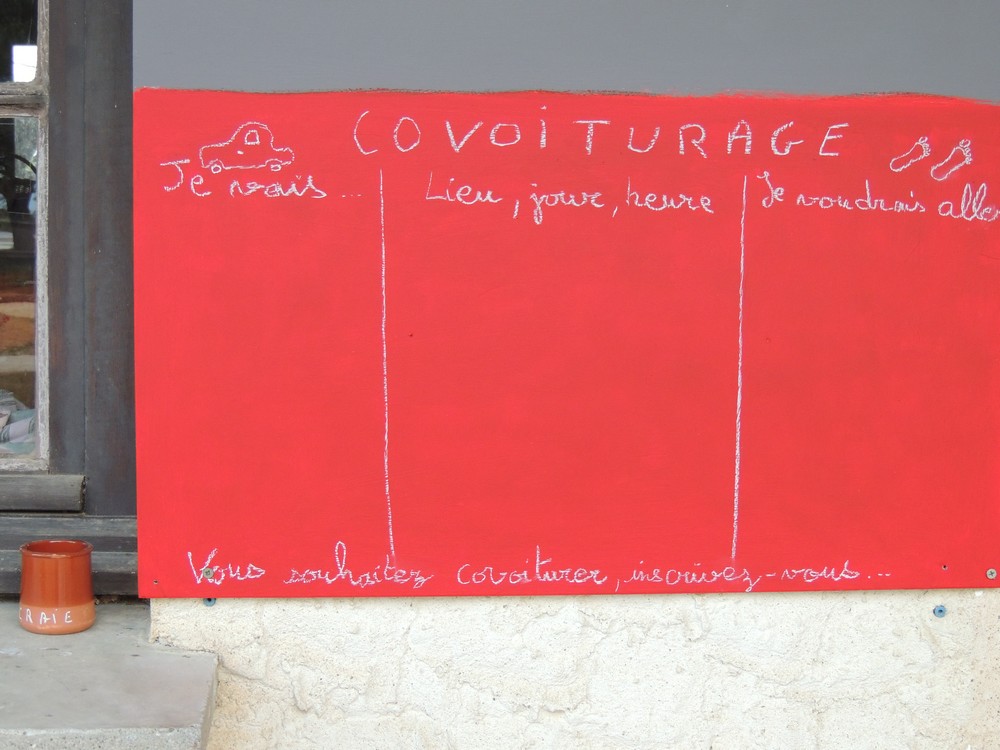 COVOITURAGE
Je vais ...
Lieu, jour, heure
Je voudrais aller
Vous souhaitez covoiturer, inscrivez-vous...
CRAIE